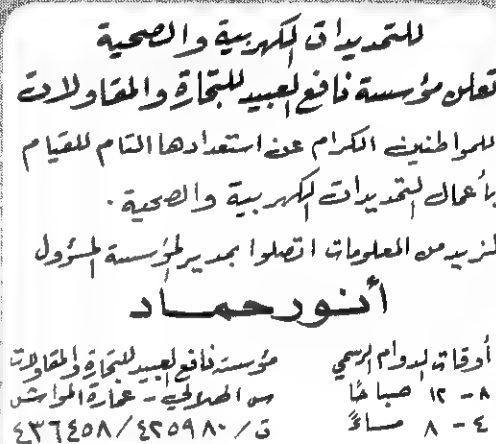 للتمديدات الكهربية والصحية
تعلن مؤسسة نافع العبيد للتجارة والمقاولات
للمواطنين الكرام عن استعدادها التام للقيام
بأعمال التمديدات الكهربية والصحية.
لمزيد من المعلومات اتصلوا بمدير المؤسسة المسؤول
أنور حماد
أوقات الدوام الرسمي
٨ - ١٢ صباحًا
٤ - ٨ مساءً
مؤسسة نافع العبيد للتجارة والمقاولات
س الهلالي - عمارة المواش
ت/ ٤٢٥٩٨٠ / ٤٣٦٤٥٨